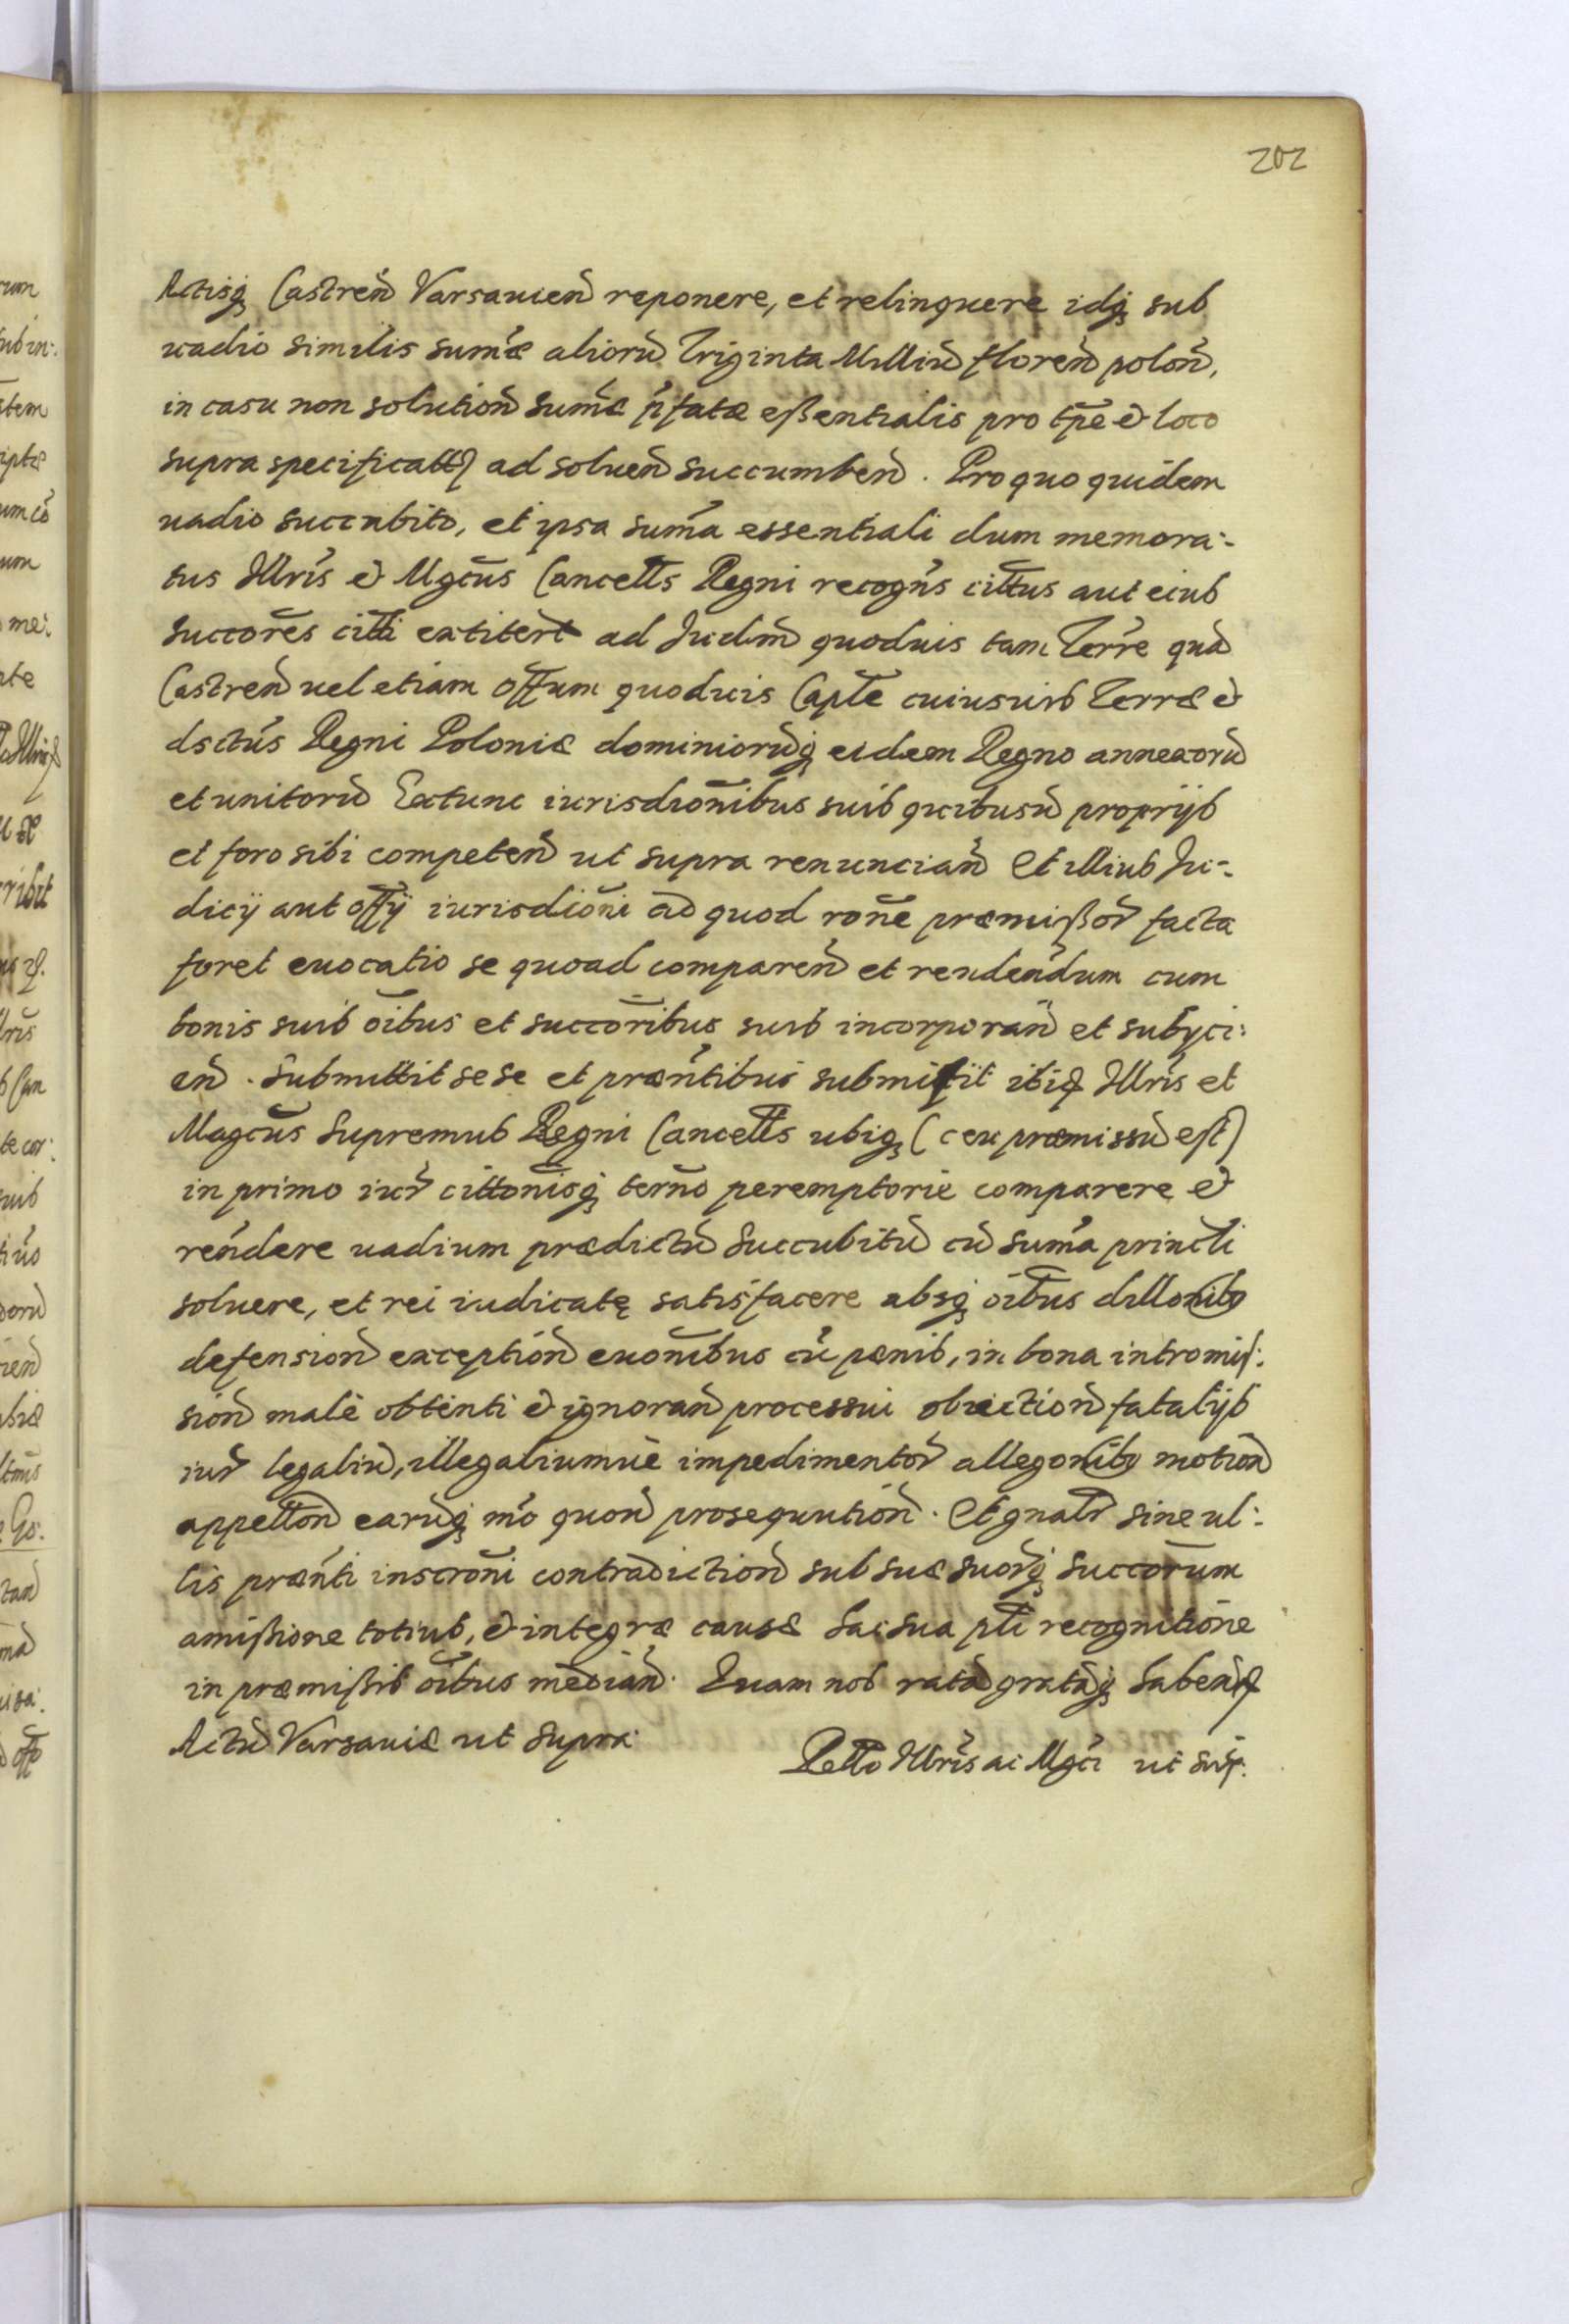 202
Actisq; Castreń Varsavień reponere, et relinquere idq; sub
vadio similis sum̃æ aliorũ Triginta Milliũ floreń poloń,
in casu non solutioń sum̃æ p̃fatæ eßentialis pro tp̃e & loco
supra specificatt ad solueń succumbeń. Pro quo quidem
uadio succubito, et ipsa sum̃a essentiali dum memora:-
tus Illr̃is & Mgcũs Cancells Regni recogñs cittus aut eius
succores citti extitert ad Judm̃ quoduis tam Terr̃e quã
Castreń uel etiam offum quoduis Caplẽ cuiusuis Terræ &
dsctũs Regni Poloniæ dominiorũq; eidem Regno annexorũ
et unitorũ Extunc iurisdioñibus suis quibusũ proprijs
et foro sibi competeń ut supra renunciań Et illius Ju:-
dicij aut offij iurisdioñi ad quod roñe præmißor̃ facta
foret euocatio se quoad compareń et reńdendum cum
bonis suis oĩbus et succor̃ibus suis incorporań et subyci:
eń. Submittit sese et præńtibus submisit ibid Illr̃is et
Magcũs Supremus Regni Cancells ubiq; (ceu præmissũ est)
in primo iur̃ cittoñisq; terño peremptorie comparere &
reńdere uadium prædictũ succubitũ cũ sum̃a princli
soluere, et rei iudicatę satisfacere absq; oĩbus dillonibs
defensioń exceptioń euoñibus cũ pænis, in bona intromis:
sioń malè obtenti & ignorań processui obiectioń fatalijs
iur̃ legaliũ, illegaliumuè impedimentor̃ allegonibs motioń
appelloń earũq; mõ quoń prosequutioń. Et gnalr̃ sine ul:-
lis præńti inscroñi contradictioń sub suæ suor̃q; succorum
amißione totius, & integræ causæ hac sua pñti recognitione
in præmißis oĩbus mediań. Quam nos ratã gratãq; habeń
Actũ Varsaviæ ut supra
Rello Illr̃is ac Mgci ut sup.